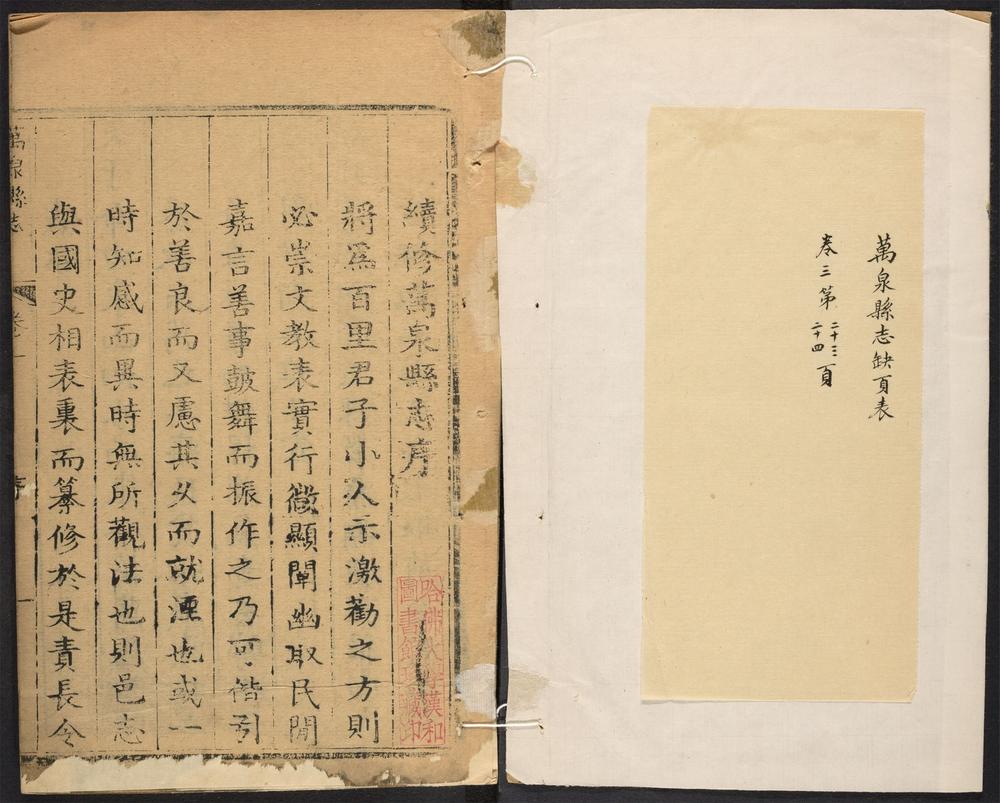 萬泉縣志缺頁表
卷三第二十三二十四頁
續修萬泉縣志序
將為百里君子小人示激勸之方則
必崇文教表實行微顯闡幽取民間
嘉言善事鼓舞而振作之乃可偕引
於善良而又慮其久而就湮也或一
時知感而異時無所觀法也則邑志
與國史相表裏而纂修於是責長令
萬泉縣志
卷一
序
一
哈佛大學漢和
圖書館珍藏印